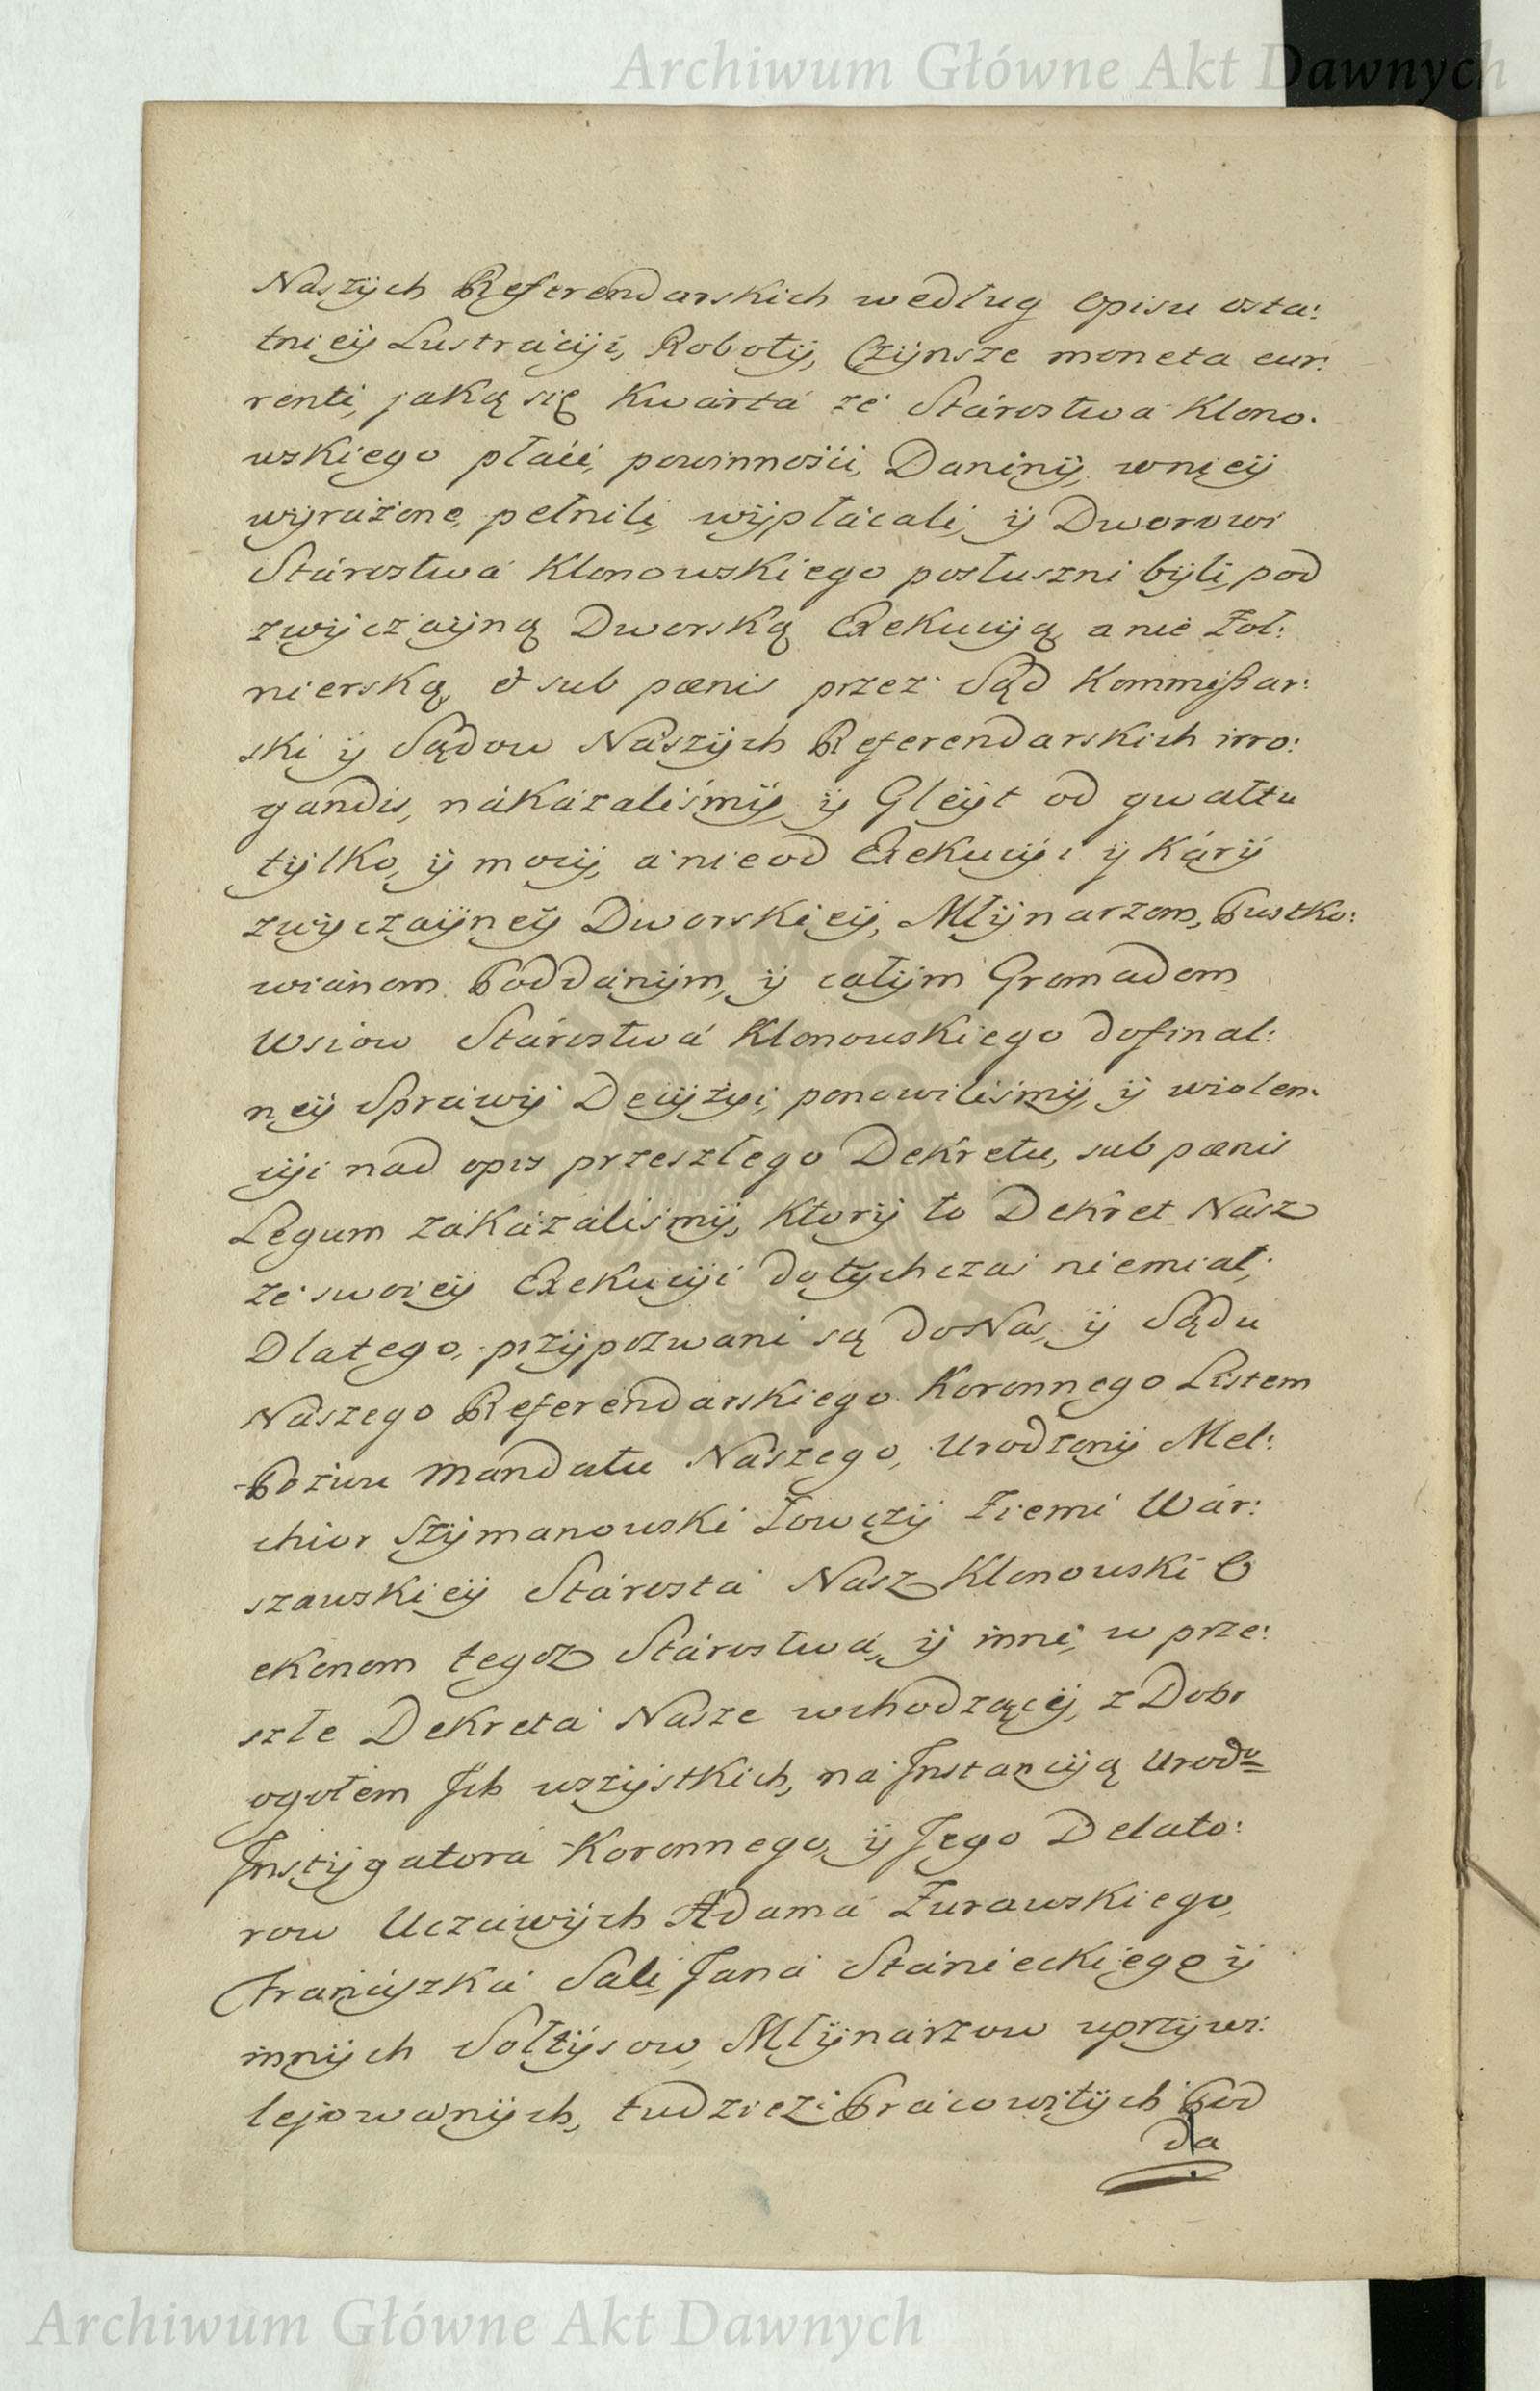 Archiwum Główne Akt Dawnych
Naszÿch Referendarskich według Opisu osta:
tnieÿ Lustracÿi, Robotÿ, Czÿnsze moneta cur:
renti, jaką się Kwarta ze Starostwa Klono:
wskiego płaci, powinności, Daninÿ, wnieÿ
wÿrażone, pełnili, wÿpłacali, ÿ Dworowi
Starostwa Klonowskiego posłuszni bÿli, pod
zwÿczaÿną Dworską Exekucÿą, a nie Żoł:
nierską, et sub pœnis przez Sąd Kommißar:
ski ÿ Sądow Naszÿch Referendarskich irro:
gandis, nakazaliśmÿ, ÿ Gleÿt od gwałtu
tÿlko, ÿ mocÿ, a nie od Exekucÿi ÿ Karÿ
zwÿczaÿneÿ Dworskieÿ, Młÿnarzom, Pustko:
wianom Poddanÿm, ÿ całÿm Gromadom
Wsiow Starostwa Klonowskiego do final:
neÿ Sprawÿ Decÿzÿi, ponowiliśmÿ, ÿ wiolen:
cÿi nad opis przeszłego Dekretu, sub pœnis
Legum zakazaliśmÿ, Ktorÿ to Dekret Nasz
ze swoieÿ Exekucÿi dotÿchczas niemiał;
Dlatego, przÿpozwani są do Nas, ÿ Sądu
Naszego Referendarskiego Koronnego Listem
Pozwu Mandatu Naszego, Urodzonÿ Mel:
chior Szÿmanowski Łowczÿ Ziemi War:
szawskieÿ Starosta Nasz Klonowski E
ekonom tegoz Starostwa, ÿ inni, w prze:
szłe Dekreta Nasze wchodzącÿ, z Dobr
ogołem Ich wszÿstkich, na Instancÿą Urodo
Instÿgatora Koronnego, ÿ Jego Delato:
row Uczciwÿch Adama Żurawskiego,
Franciszka Sali, Jana Stanieckiego ÿ
innÿch Sołtÿsow, Młÿnarzow uprzÿwi:
lejowanÿch, tudziez Pracowitÿch Pod
da
Archiwum Główne Akt Dawnych